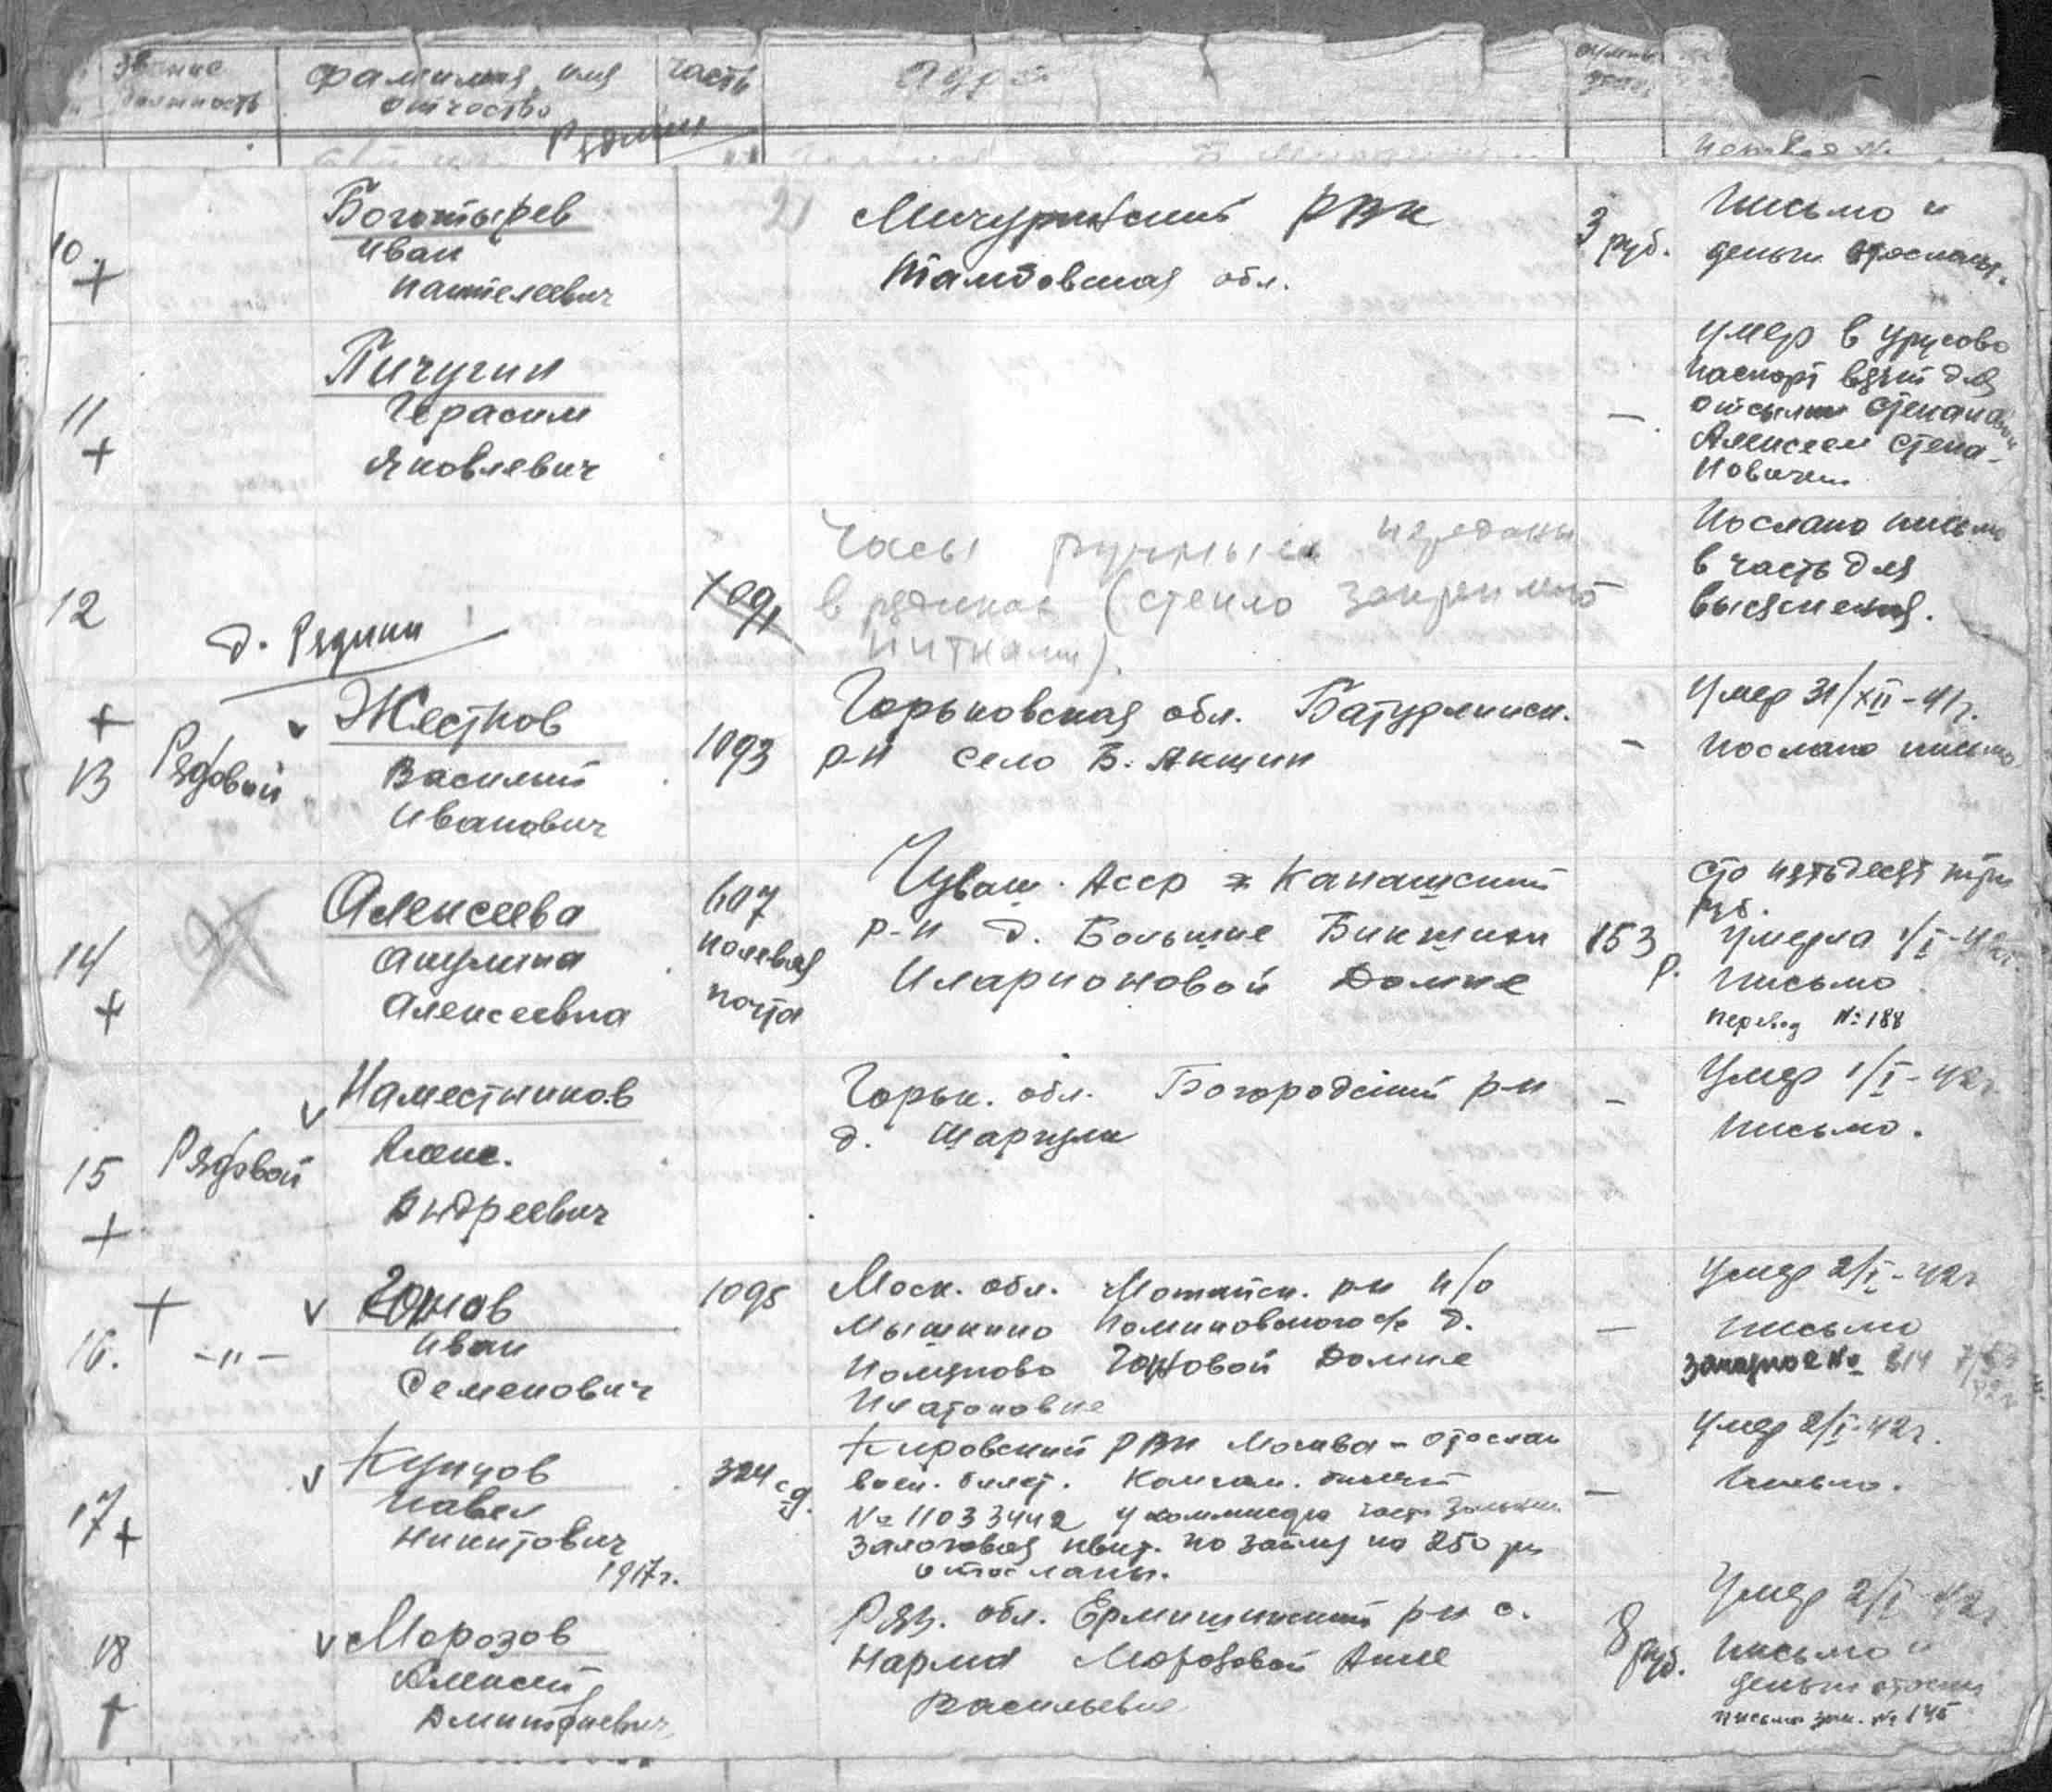 звание
должность
фамилия, имя
отчество
часть
адрес
Редики
10.
Боготырев
Иван
Пантелеевич
21
Мичуринский РВК
Тамбовская обл.
3 руб.
Письмо и
деньги отосланы.
11
Пичугин
Герасим
Яковлевич
—
умер в Урусово
паспорт взят для
отсылки Степановым
Алексеем Степа-
новичем
12
1091
Часы ручные переданы
в (стекло закреплено
нитками).
Послано письмо
в часть для
выяснения.
д. Редики
13
Рядовой
Жестков
Василий
Иванович
1093
Горьковская обл. Батурлинск.
р-н село Б. Якшин
—
Умер 31/XII-41г.
Послано письмо
14
Алексеева
Акулина
Алексеевна
607
полевая
почта
Чуваш. Асср Канашский
р-н д. Большие Бикшихи
Иларионовой Домне
153 р.
Сто пятьдесят три
руб.
Умерла 1/I-42г.
Письмо
перевод № 188
15
Рядовой
Наместников
Алекс.
Андреевич
Горьк. обл. Богородский р-н
д. Шаргули
—
Умер 1/I-42г.
Письмо.
16.
-"-
Иван
Семенович
1095
Моск. обл. Можайск. р-н п/о
Мышкино с/с д.
Домне
Платоновне
—
Умер 2/I-42г
Письмо
заказное № 814
17
Купцов
Павел
Никитович
1917г.
324 сд.
Кировский РВК Москва - отослан
воен. билет. Комсом. билет
№ 11033442 у
залоговая квит. по займу на 250 р.
отосланы.
—
Умер 2/I-42г.
Письмо.
18
Морозов
Алексей
Дмитриевич
Ряз. обл. Ермишинский р-н с.
Нарма Морозовой Анне
Васильевне
8 руб.
Умер 2/I-42г
Письмо и
деньги отосланы
письмо зак. № 145